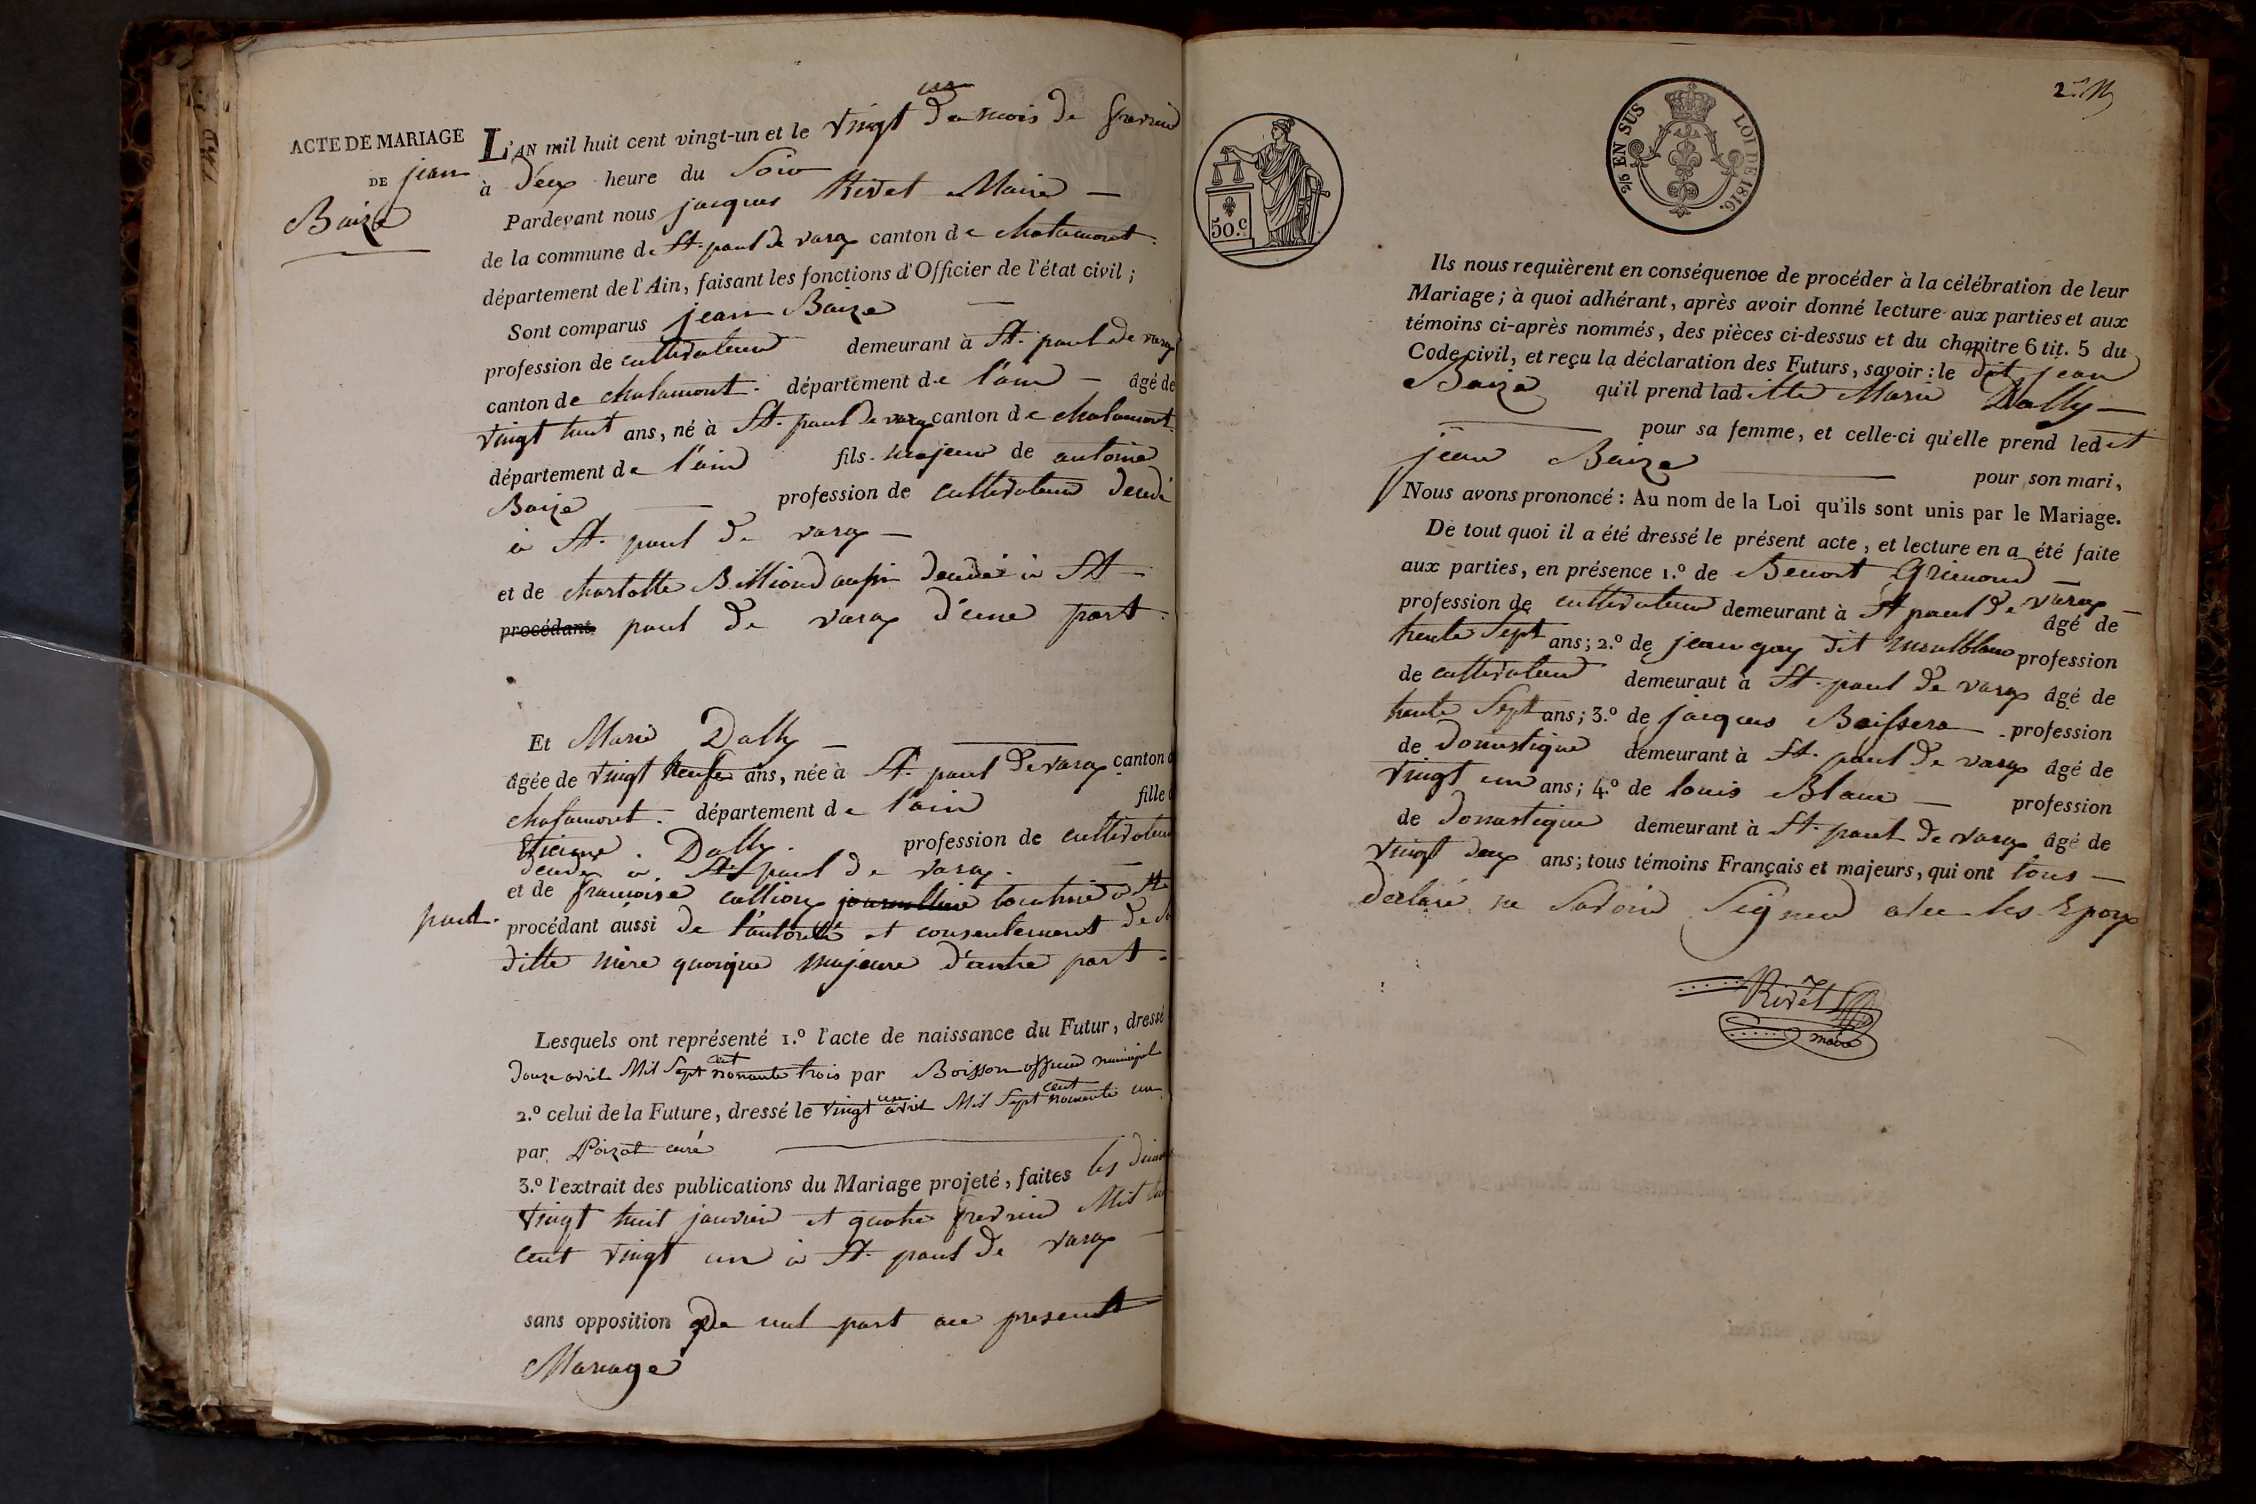 ACTE DE MARIAGE
DE jean
Baize
L'AN mil huit cent vingt-un et le vingt un du mois de fevrier
à deux heure du Soir
Pardevant nous jacques Rivet Maire —
de la commune de St. paul de varax canton de chalamont.
département de l'Ain, faisant les fonctions d'Officier de l'état civil ;
Sont comparus jean Baize —
profession de cultivateur demeurant à St. paul de varax
canton de chalamont. département de l'ain — âgé de
vingt huit ans, né à St. paul de varax canton de chalamont.
département de l'ain fils majeur de antoine
Baize — profession de cultivateur deudé
à St. paul de varax —
et de charlotte Billioud aussi deudé à St
procédant paul de varax d'une part.
Et Marie Dally —
âgée de vingt neufe ans, née à St. paul de varax canton d
chalamont. département de l'ain fille d
Dally. profession de cultivateur
deudé à St paul de varax.
et de francoise à St
paul.
procédant aussi de l'autorité et consentement de sa
ditte mère quoique majeure d'autre part.
Lesquels ont représenté 1.º l'acte de naissance du Futur, dressé
douze avril Mil Sept cent nonante trois par Boisson officier municipal
2.º celui de la Future, dressé le vingt un avril Mil Sept cent nonante un
par Poizat curé
3.º l'extrait des publications du Mariage projeté, faites les
vingt huit janvier et quatre fevrier Mil huit
cent vingt un à St. paul de varax —
sans opposition de nul part au present
Mariage
50.C
26 EN SUS
LOI DE 1816.
Ils nous requièrent en conséquence de procéder à la célébration de leur
Mariage ; à quoi adhérant, après avoir donné lecture aux parties et aux
témoins ci-après nommés, des pièces ci-dessus et du chapitre 6 tit. 5 du
Code civil, et reçu la déclaration des Futurs, savoir : le dit jean
Baize qu'il prend laditte Marie Dally —
pour sa femme, et celle-ci qu'elle prend ledit
jean Baize pour son mari,
Nous avons prononcé : Au nom de la Loi qu'ils sont unis par le Mariage.
De tout quoi il a été dressé le présent acte, et lecture en a été faite
aux parties, en présence 1.º de Benoit Grimoud —
profession de cultivateur demeurant à St paul de varax — âgé de
trente Sept ans ; 2.º de jean gay dit profession
de cultivateur demeuraut à St. paul de varax âgé de
trente Sept ans ; 3.º de jacques Boissera profession
de domestique demeurant à St. paul de varax âgé de
vingt un ans ; 4.º de louis Blanc — profession
de domestique demeurant à St. paul de varax âgé de
vingt deux ans ; tous témoins Français et majeurs, qui ont tous —
declaré ne Savoir Signer avec les Epoux
Rivet
maire